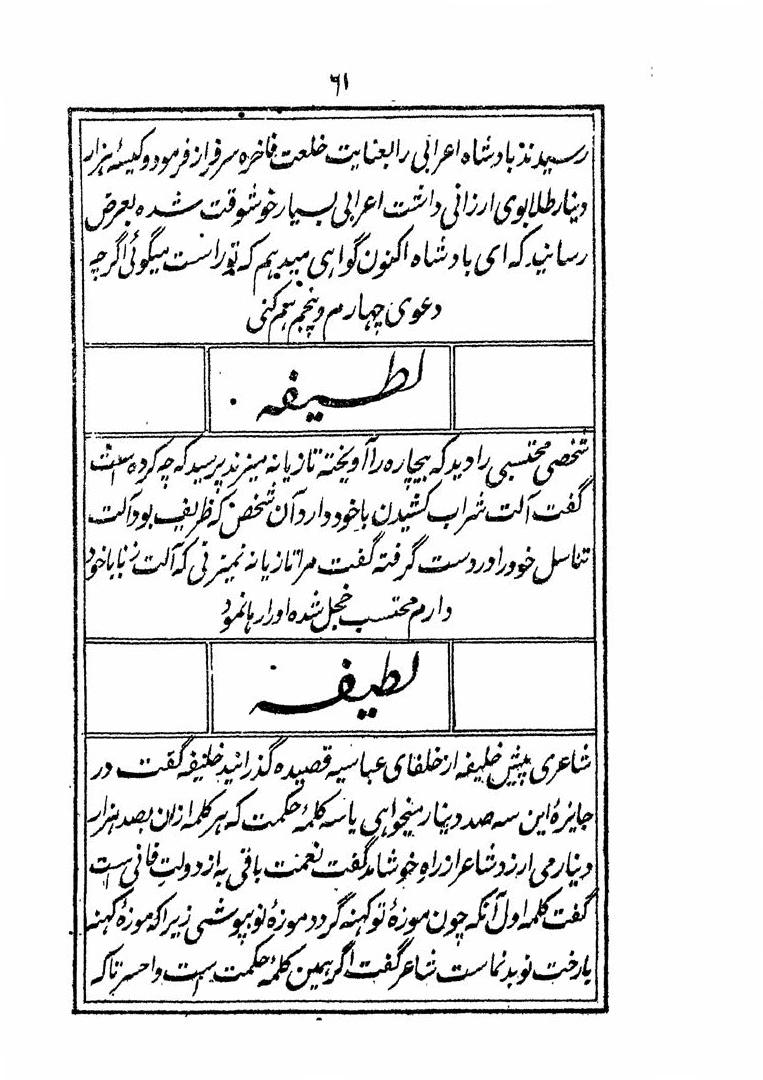 ۶۱
رسیدند بادشاه اعرابی را بعنایت خلعت فاخره سرفراز فرمود و کیسهٔ هزار
دینار طلا بوی ارزانی داشت اعرابی بسیار خوشوقت شده بعرض
رسانید که ای بادشاه اکنون گواهی میدهم که تو راست میگوئی اگرچه
دعوی چهارم و پنجم هم کنی
لطیفه
شخصی محتسبی را دید که بیچاره را آویخته تازیانه میزند پرسید که چه کرده است
گفت آلت شراب کشیدن با خود دارد آن شخص که ظریف بود آلت
تناسل خود را در دست گرفته گفت مرا تازیانه نمیزنی که آلت زنا با خود
دارم محتسب خجل شده او را رها نمود
لطیفه
شاعری پیش خلیفه از خلفای عباسیه قصیده گذرانید خلیفه گفت در
جایزهٔ این سه صد دینار میخواهی یا سه کلمهٔ حکمت که هر کلمه ازان بصد هزار
دینار می ارزد شاعر از راه خوشامد گفت نعمت باقی به از دولت فانی است
گفت کلمه اول آنکه چون موزهٔ تو کهنه گردد موزهٔ نو بپوشی زیرا که موزهٔ کهنه
با رخت نو بدنماست شاعر گفت اگر همین کلمهٔ حکمت است واحسرتا که